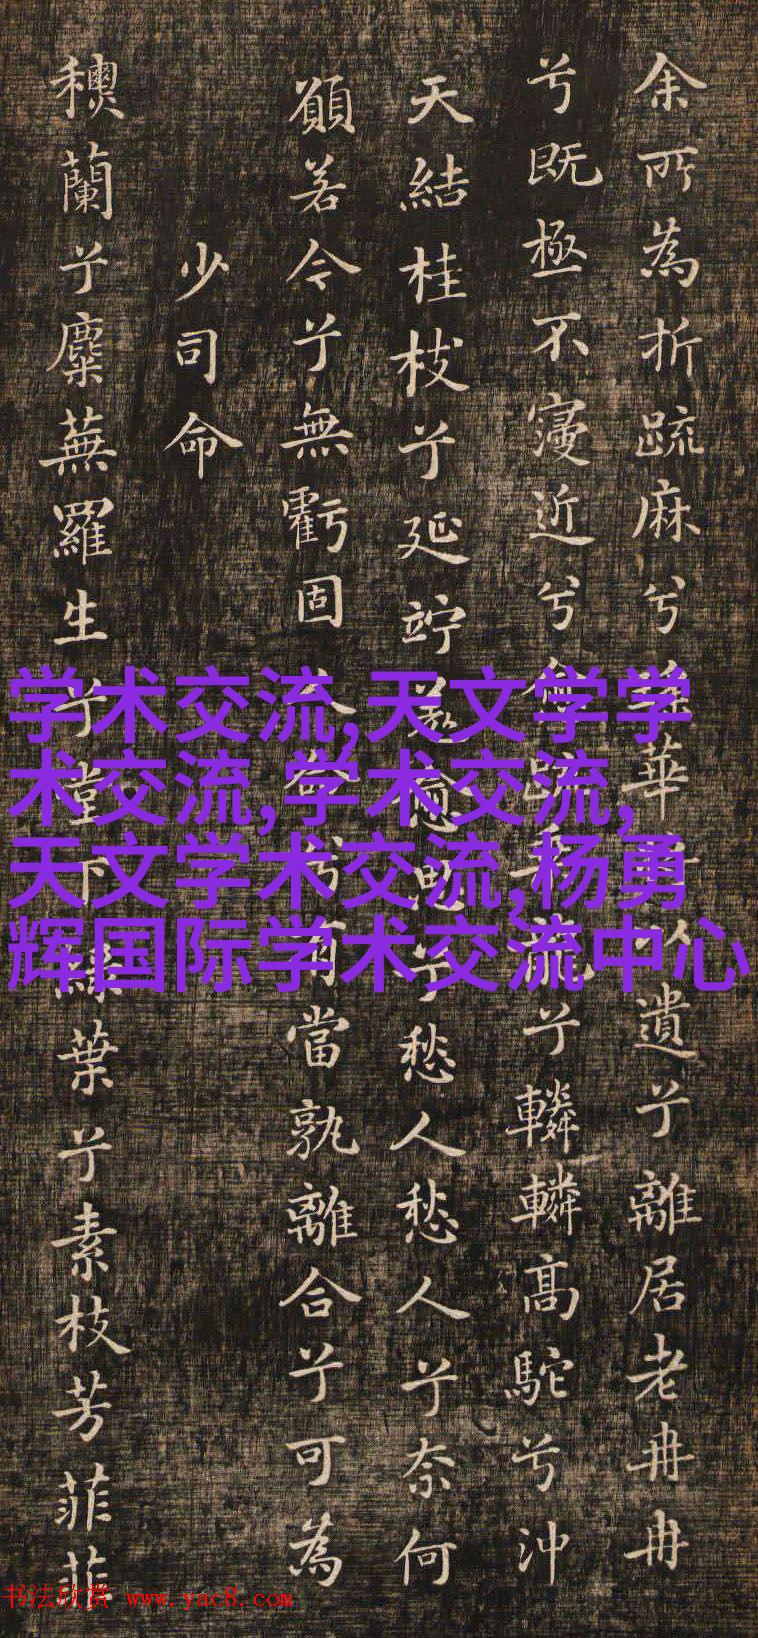 余所為折疏麻兮華遺兮離居老冉冉
兮既極不寖近兮愈疏兮轔轔高駝兮沖
天結桂枝兮延竚羗愈思兮愁人愁人兮奈何
願若今兮無虧固人命兮有當孰離合兮可為
少司命
穠蘭兮麋蕪羅生兮堂下緑葉兮素枝芳菲菲
学术交流,天文学学
术交流,学术交流,
天文学术交流,杨勇
辉国际学术交流中心
书法欣赏 www.yac8.com